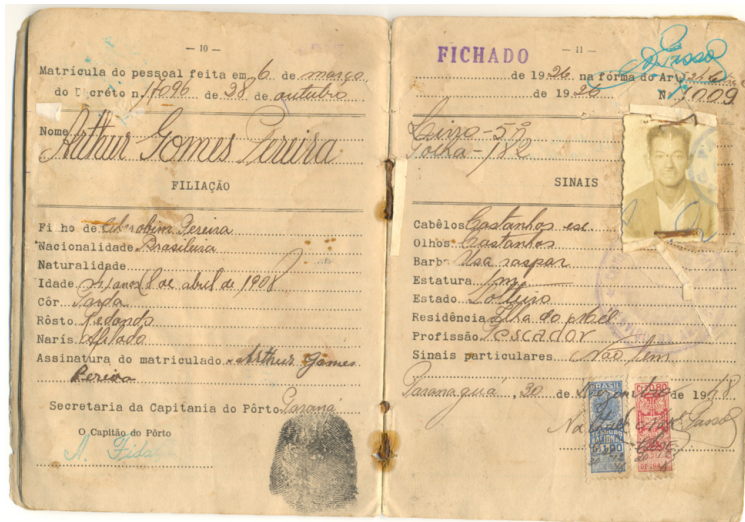 — 10 —
Matrícula do pessoal feita em 6 de março
do Decreto n. 17096 de 28 de outubro
Nome Arthur Gomes Pereira
FILIAÇÃO
Filho de Cherobim Pereira
Nacionalidade Brasileira
Naturalidade
Idade anos (8 de abril de 1908
Côr Parda
Rôsto Redondo
Naris Afilado
Assinatura do matriculado Arthur Gomes
Pereira
Secretaria da Capitania do Pôrto Paraná
O Capitão do Pôrto
FICHADO
— 11 —
de 1926 na fórma do Art
de 1925 N.
Livro - 5A
Folha - 782
SINAIS
Cabêlos Castanhos esc
Olhos Castanhos
Barba Usa raspar
Estatura 1m
Estado Solteiro
Residência Ilha do Mel
Profissão Pescador
Sinais particulares Não tem
Paranaguá, 30 de de 19
BRASIL